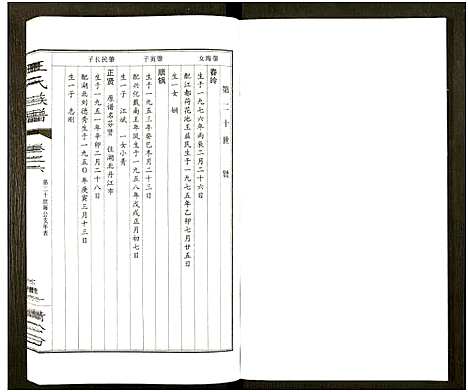 第二十世 贤
肇海女
春玲
生于一九七六年丙辰二月二十六日
配江都荷花池王益民生于一九七五年乙卯七月廿五日
生一女 娴
肇贡子
顺钱
生于一九五三年癸巳冬月二十三日
配兴化戴南王年凤生于一九五八年戊戌正月初七日
生一子 江斌 一女小青
肇民长子
正贤 原谱名谷贤 住湖北丹江市
生于一九五一年辛卯二月二十八日
配湖北刘德秀生于一九五〇年庚寅三月十三日
生一子 志刚
王氏族谱
卷三六